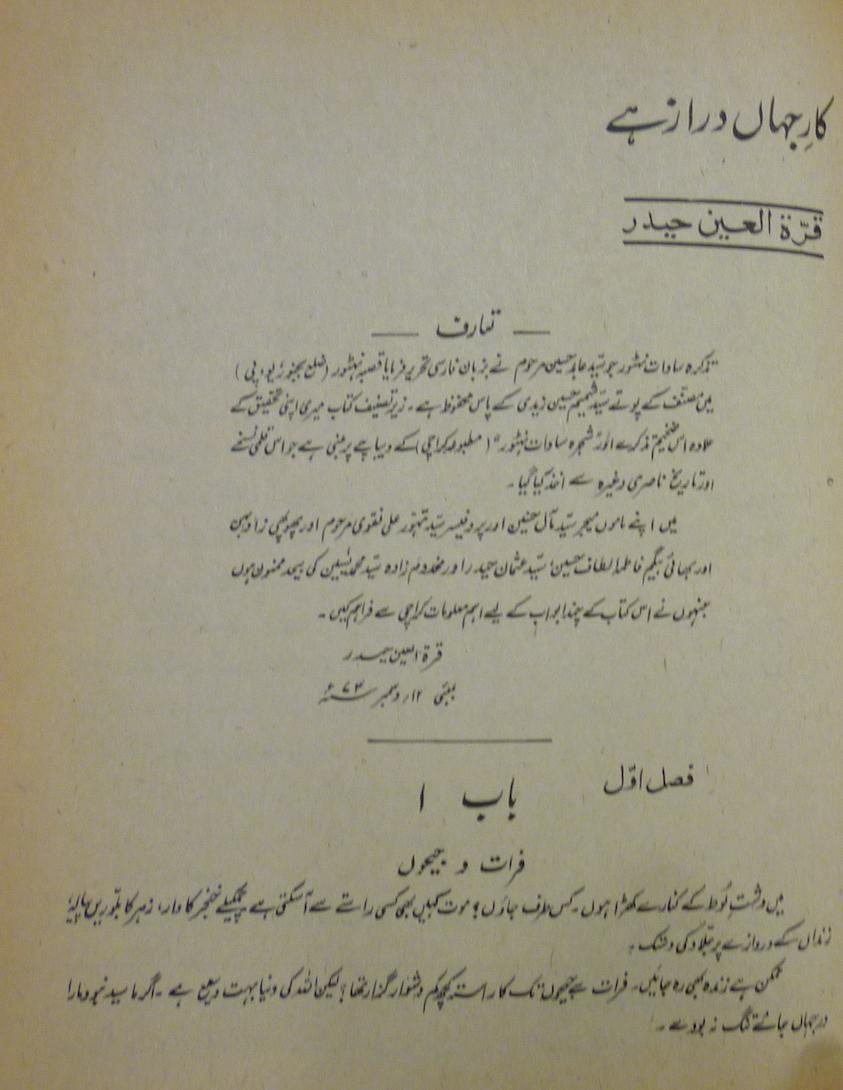 کارِ جہاں دراز ہے
قرّۃ العین حیدر
— تعارف —
تذکرہ سادات نہٹور جو سیّد عابد حسین مرحوم نے بزبان فارسی تحریر فرمایا قصبہ نہٹور (ضلع بجنور، یو۔ پی)
میں مصنّف کے پوتے سیّد شمیم حسین زیدی کے پاس محفوظ ہے۔ زیرِ تصنیف کتاب میری اپنی تحقیق کے
علاوہ اس ضخیم تذکرے اور "شجرہ سادات نہٹور" (مطبوعہ کراچی) کے دیباچے پر مبنی ہے جو اس قلمی نسخے
اور تاریخ ناصری وغیرہ سے اخذ کیا گیا۔
میں اپنے ماموں میجر سیّد آل حسنین اور پروفیسر سیّد تہور علی نقوی مرحوم اور پھوپھی زاد بہن
اور بھائی بیگم فاطمہ الطاف حسین، سیّد عثمان حیدر اور مخدوم زادہ سیّد محمد یٰسین کی بیحد ممنون ہوں
جنہوں نے اس کتاب کے چند ابواب کے لیے اہم معلومات کراچی سے فراہم کیں۔
قرۃ العین حیدر
بمبئی ۱۲؍ دسمبر ۷۳ء
فصل اوّل
باب ۱
فرات و جیحوں
میں دشتِ لُوط کے کنارے کھڑا ہوں۔ کس طرف جاؤں؟ موت کہیں بھی کسی راستے سے آ سکتی ہے چمکیلے خنجر کا وار، زہر کا بلّوریں پیالہ،
زنداں کے دروازے پر جلّاد کی دستک۔
ممکن ہے زندہ بھی رہ جائیں۔ فرات سے جیحوں تک کا راستہ کچھ کم دشوار گزار تھا؟ لیکن اللہ کی دنیا بہت وسیع ہے۔ اگر ما سید نبود مارا
در جہاں جائے تنگ نہ بودے۔